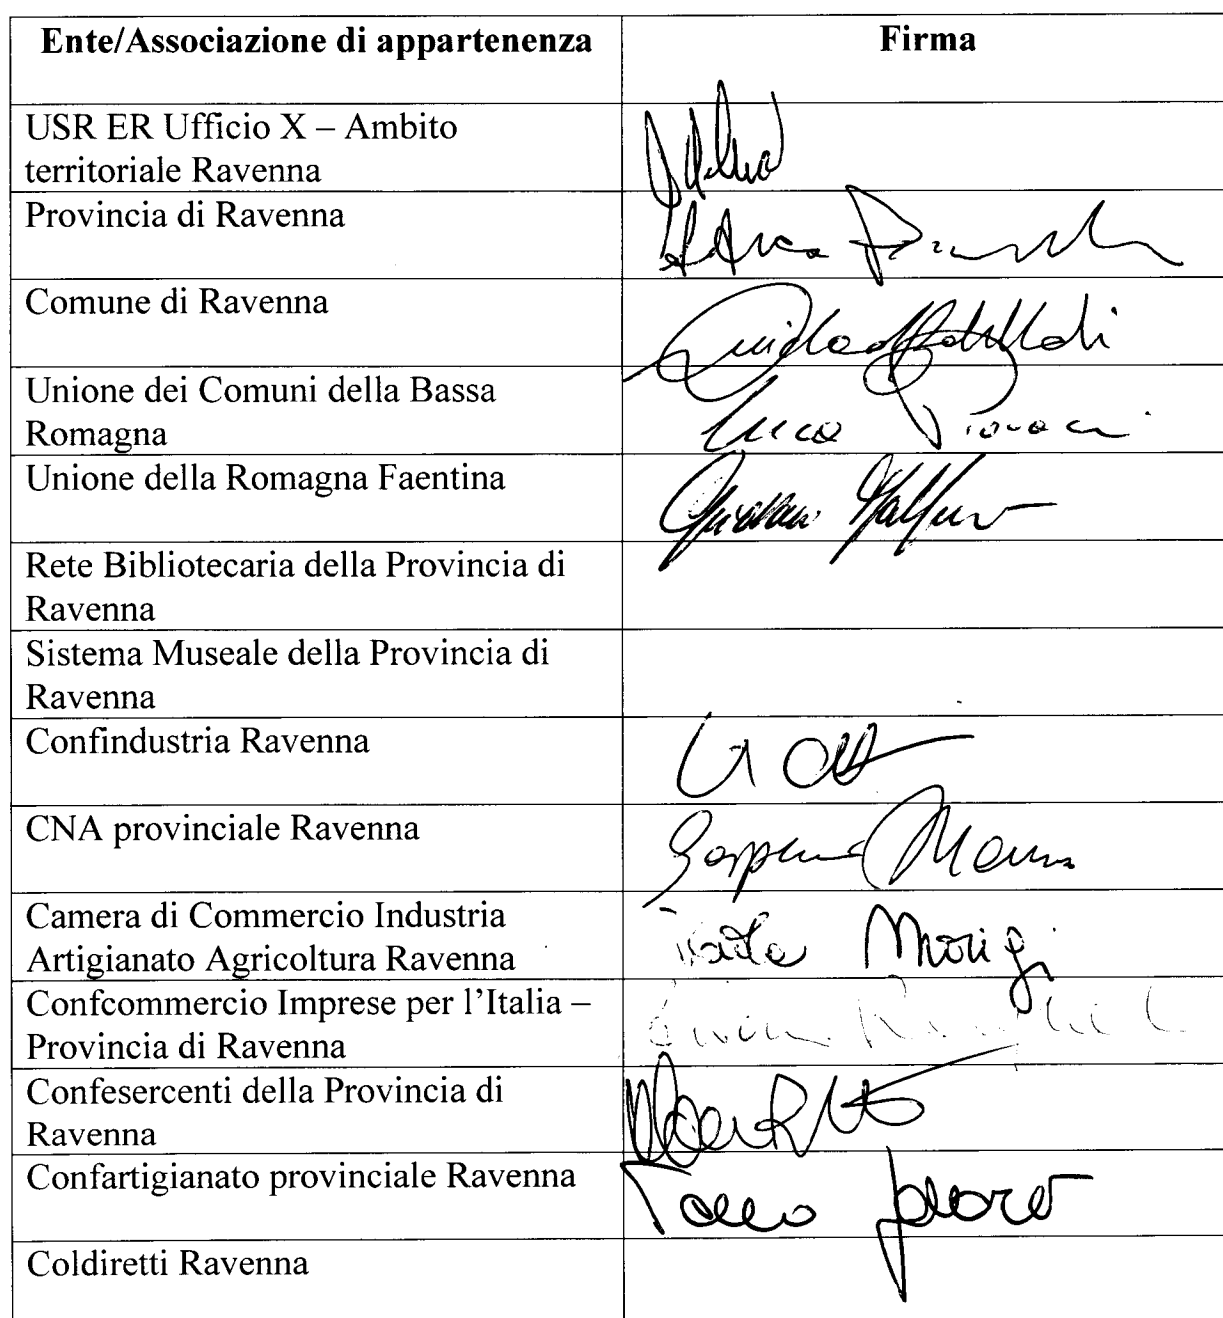 Ente/Associazione di appartenenza Firma
USR ER Ufficio X – Ambito
territoriale Ravenna
Provincia di Ravenna
Comune di Ravenna
Unione dei Comuni della Bassa
Romagna
Luca
Unione della Romagna Faentina
Rete Bibliotecaria della Provincia di
Ravenna
Sistema Museale della Provincia di
Ravenna
Confindustria Ravenna
CNA provinciale Ravenna
Camera di Commercio Industria
Artigianato Agricoltura Ravenna
Morigi
Confcommercio Imprese per l'Italia –
Provincia di Ravenna
Confesercenti della Provincia di
Ravenna
Confartigianato provinciale Ravenna
Coldiretti Ravenna